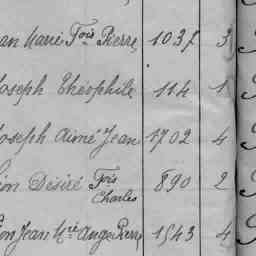 an Marie Fois Pierre, 1037 3
oseph Théophile 114 1
oseph Aimé Jean 1702 4
on Désiré Fois Charles 890 2
on Jean Mie Ange Pierre 1543 4